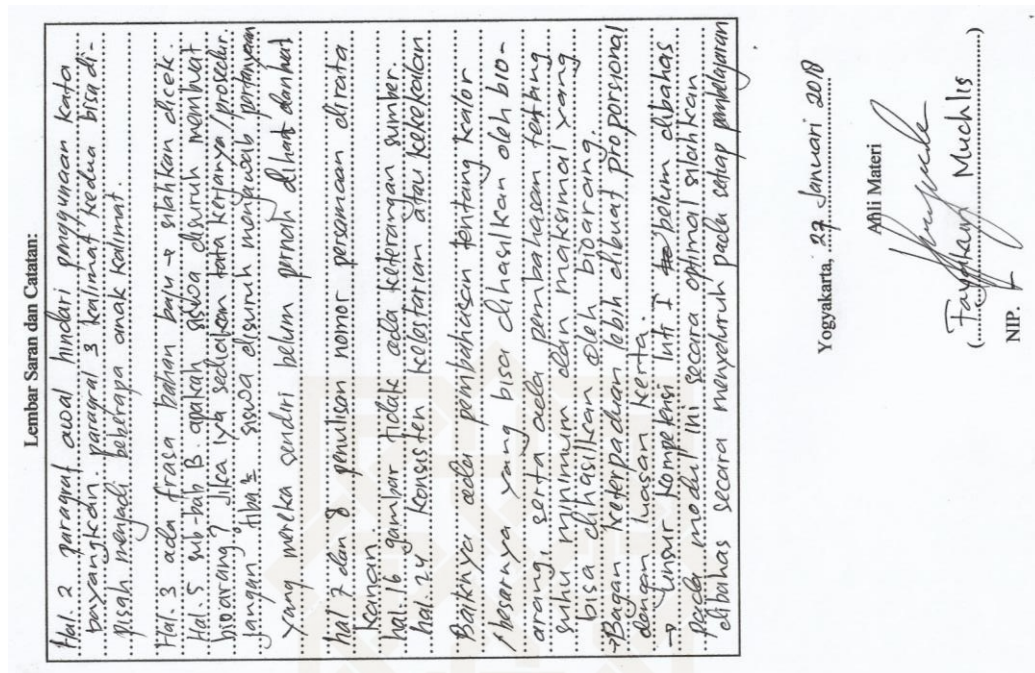 Lembar Saran dan Catatan:
Hal. 2 paragraf awal hindari penggunaan kata
bayangkan. paragraf 3 kalimat kedua bisa di-
pisah menjadi beberapa anak kalimat.
Hal. 3 ada frasa bahan baju → silahkan dicek.
Hal. 5 sub-bab B. apakah siswa disuruh membuat
bioarang? Jika iya sediakan tata kerjanya/prosedur.
jangan tiba2 siswa disuruh menjawab pertanyaan
yang mereka sendiri belum pernah dilihat
hal 7 dan 8 penulisan nomor persamaan dirata
kanan
hal. 16 gambar tidak ada keterangan sumber.
hal. 24 konsisten kelestarian atau kekekalan
Baiknya ada pembahasan tentang kalor
/besarnya yang bisa dihasilkan oleh bio-
arang, serta ada pembahasan tentang
suhu minimum dan maksimal yang
bisa dihasilkan oleh bioarang.
→Bagan keterpaduan lebih dibuat proporsional
dengan luasan kertas.
→ Unsur kompetensi Inti I belum dibahas
pada modul ini secara optimal silahkan
dibahas secara menyeluruh pada setiap pembelajaran
Yogyakarta, 27 Januari 2018
Ahli Materi
(.... Muchlis ....)
NIP.